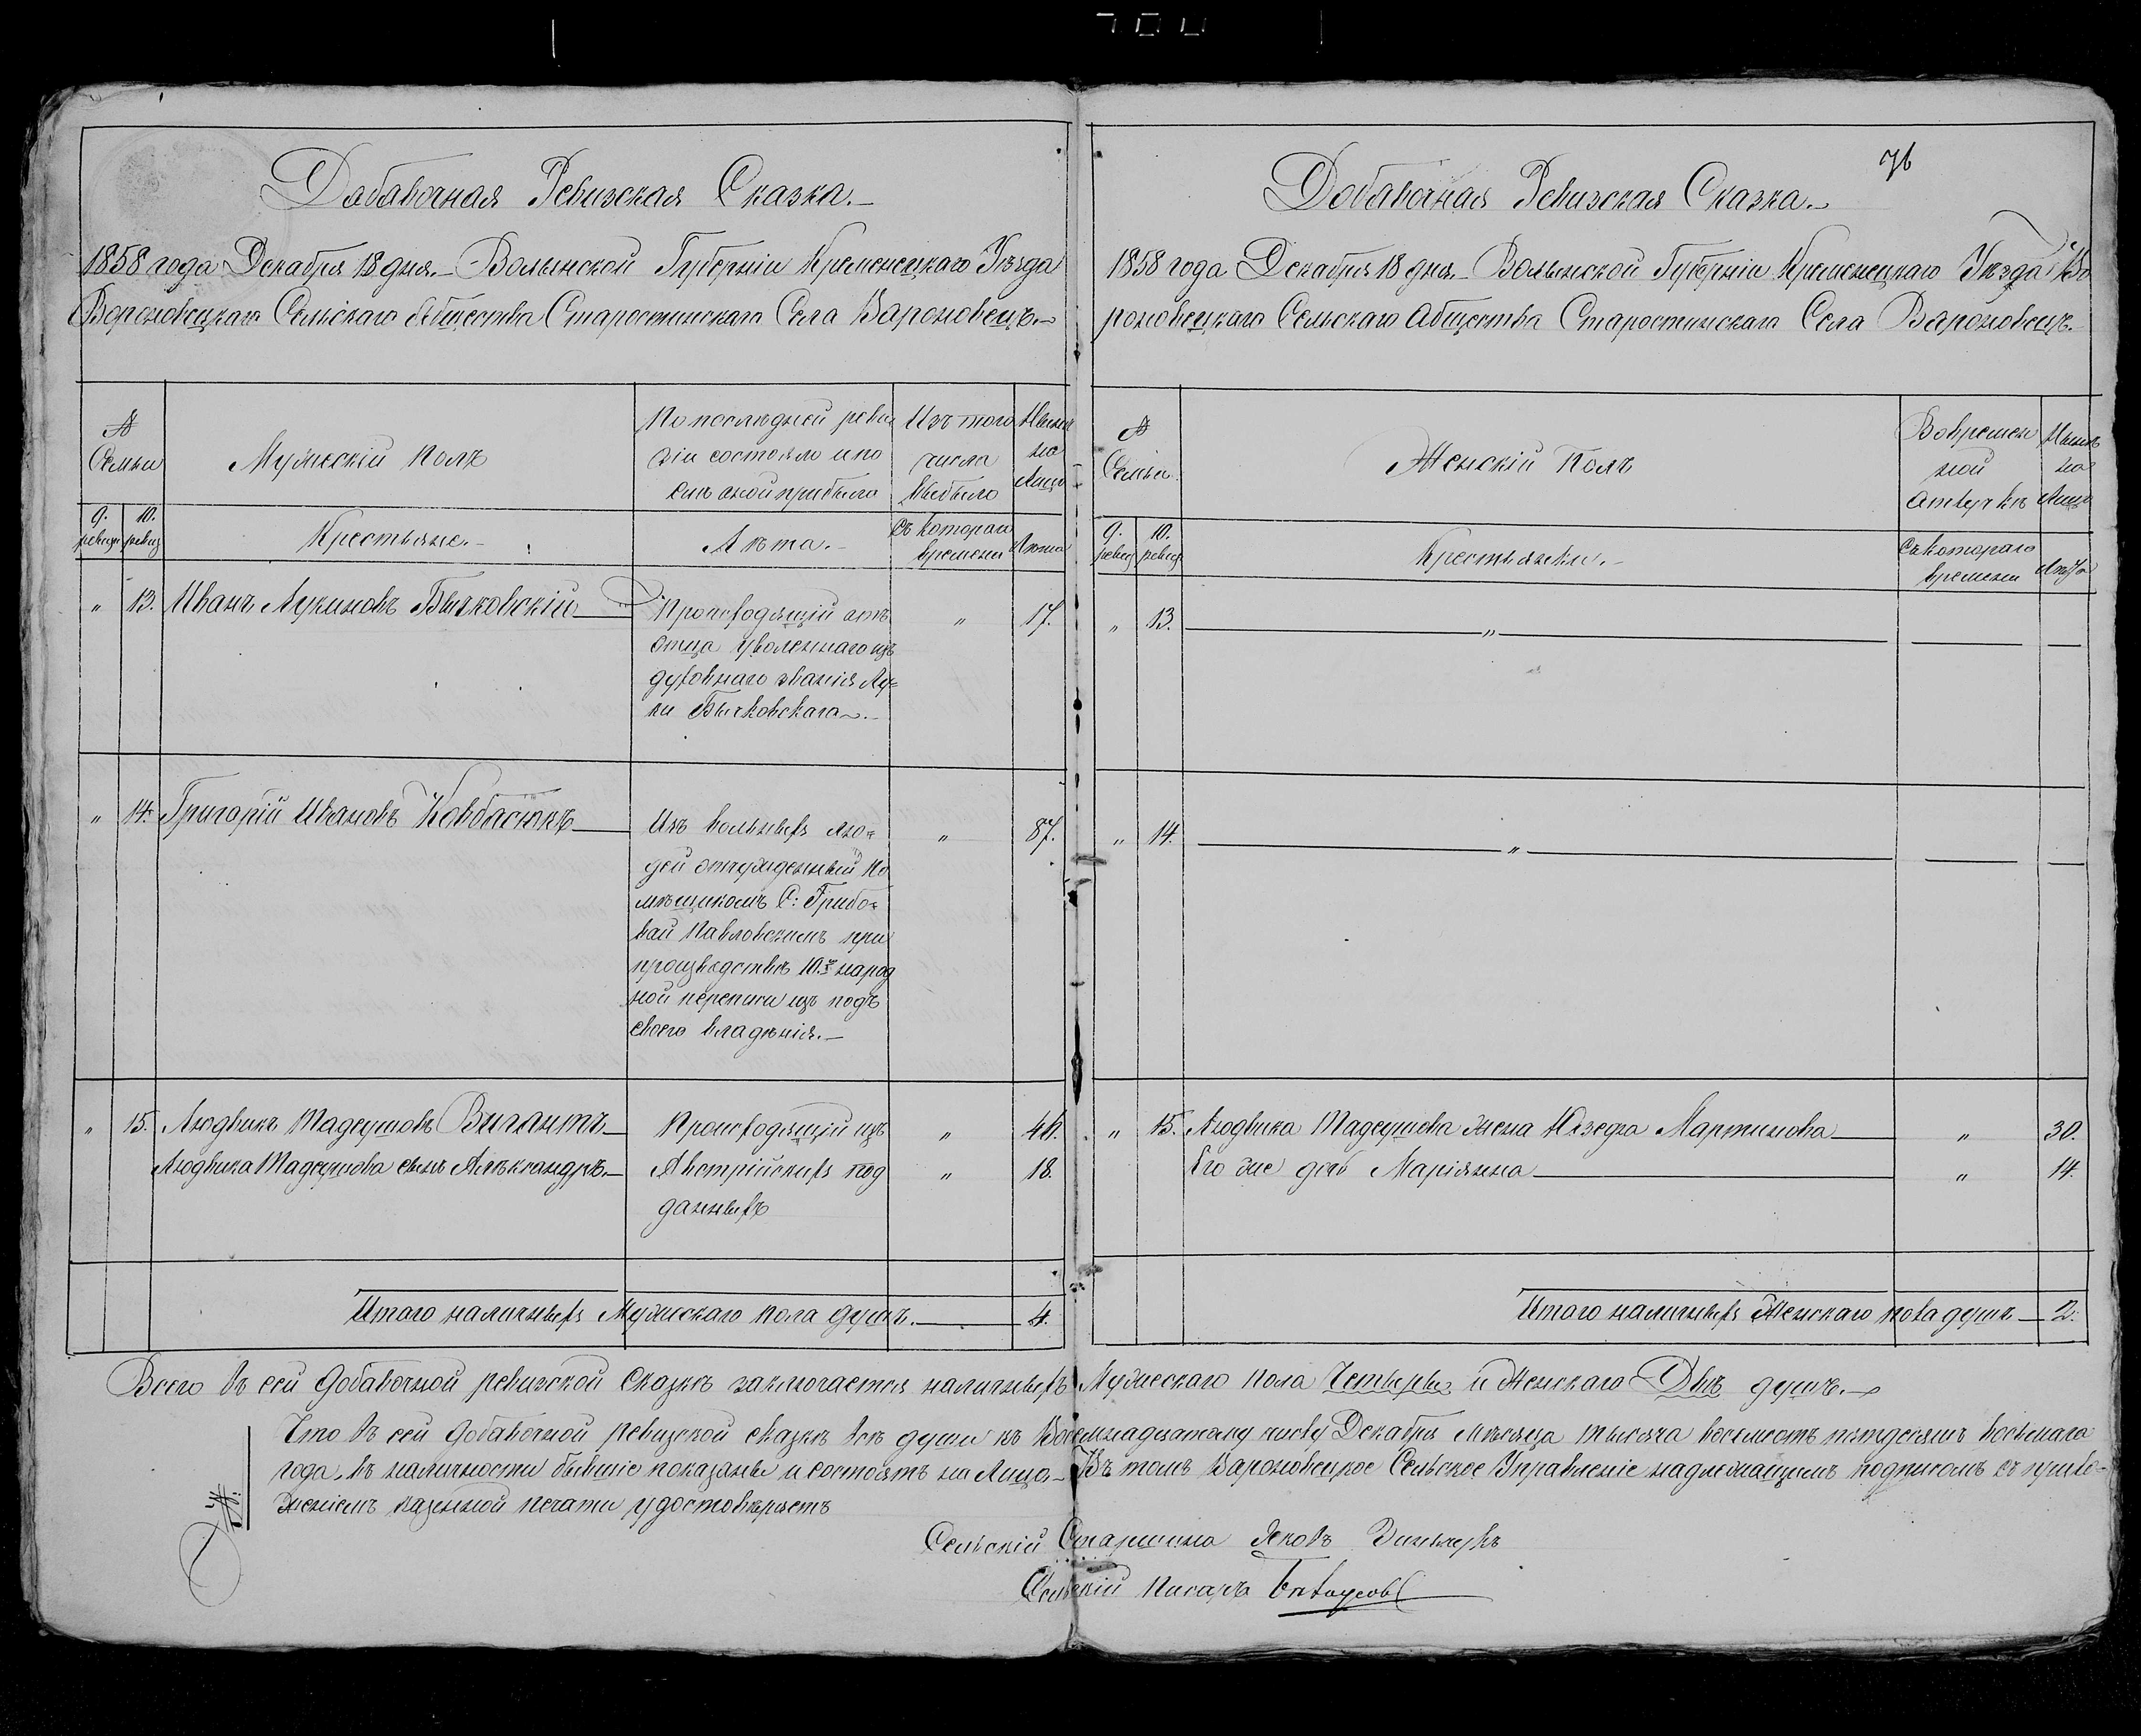 Дабавочная Ревизская Сказка.
1858 года Декабря 18 дня. Волынской Губерніи Кременецкаго Уѣзда
Вороновецкаго Сельскаго Общества Старостинскаго Села Вароновецъ.
№ Семьи
9. ревиз. 10. ревиз
Мужескій полъ
Крестьяне.
По послѣдней реви
зіи состояло и по
слѣ оной прибыло
Лѣта.
Изъ того
числа
выбыло
Съ котораго
времени
Нынѣ
на
лицо
Лѣта
" 13. Иванъ Лукиновъ Бычковскій
Происходящій отъ
отца уволеннаго изъ
духовнаго званія Лу=
ки Бычковскаго.
" 17.
" 14. Григорій Ивановъ Ковбасюкъ
Изъ вольныхъ лю=
дей отчужденный По
мѣщикомъ С: Грибо=
вай Павловскимъ при
производствѣ 10.й народ
ной переписи изъ подъ
своего владѣнія.
" 87.
" 15. Людвикъ Тадеушовъ Вигантъ
Происходящій изъ
" 46.
Людвика Тадеушова сынъ Алѣксандръ.
Австрійскихъ под
данныхъ
" 18.
Итого наличныхъ Мужескаго пола душъ. 4.
76
Добавочная Ревизская Сказка.
1858 года Декабря 18 дня. Волынской Губерніи Кременецкаго Уѣзда Во
роновецкаго Сельскаго Абщества Старостинскаго Села Вароновецъ.
№ Семьи
9. ревиз 10. ревиз
Женскій полъ
Крестьянки.
Вовремен
ной
атлучкѣ
Съ котораго
времени
Нынѣ
на
лицо
Лѣта
" 13. "
" 14. "
" 15. Людвика Тадеушова жена Юзефа Мартинова " 30.
Его же дочь Маріянна " 14.
Итого наличныхъ Женскаго пола душъ 2.
Всего въ сей добавочной ревизской сказкѣ заключается наличныхъ Мужескаго пола Четыре и Женскаго Двѣ душъ.
Что въ сей добавочной ревизской сказкѣ всѣ души къ Восемнадцатому числу Декабря Мѣсяца тысяча восемсотъ пятдесятъ восьмаго
года въ наличности бывшіе показаны и состоятъ на Лицо. Въ томъ Вароновецкое Сельское Управленіе надлежащимъ подписомъ съ прило-
женіемъ казенной печати удостовѣряетъ
Сельскій Старшина Яковъ
Сельскій Писарь